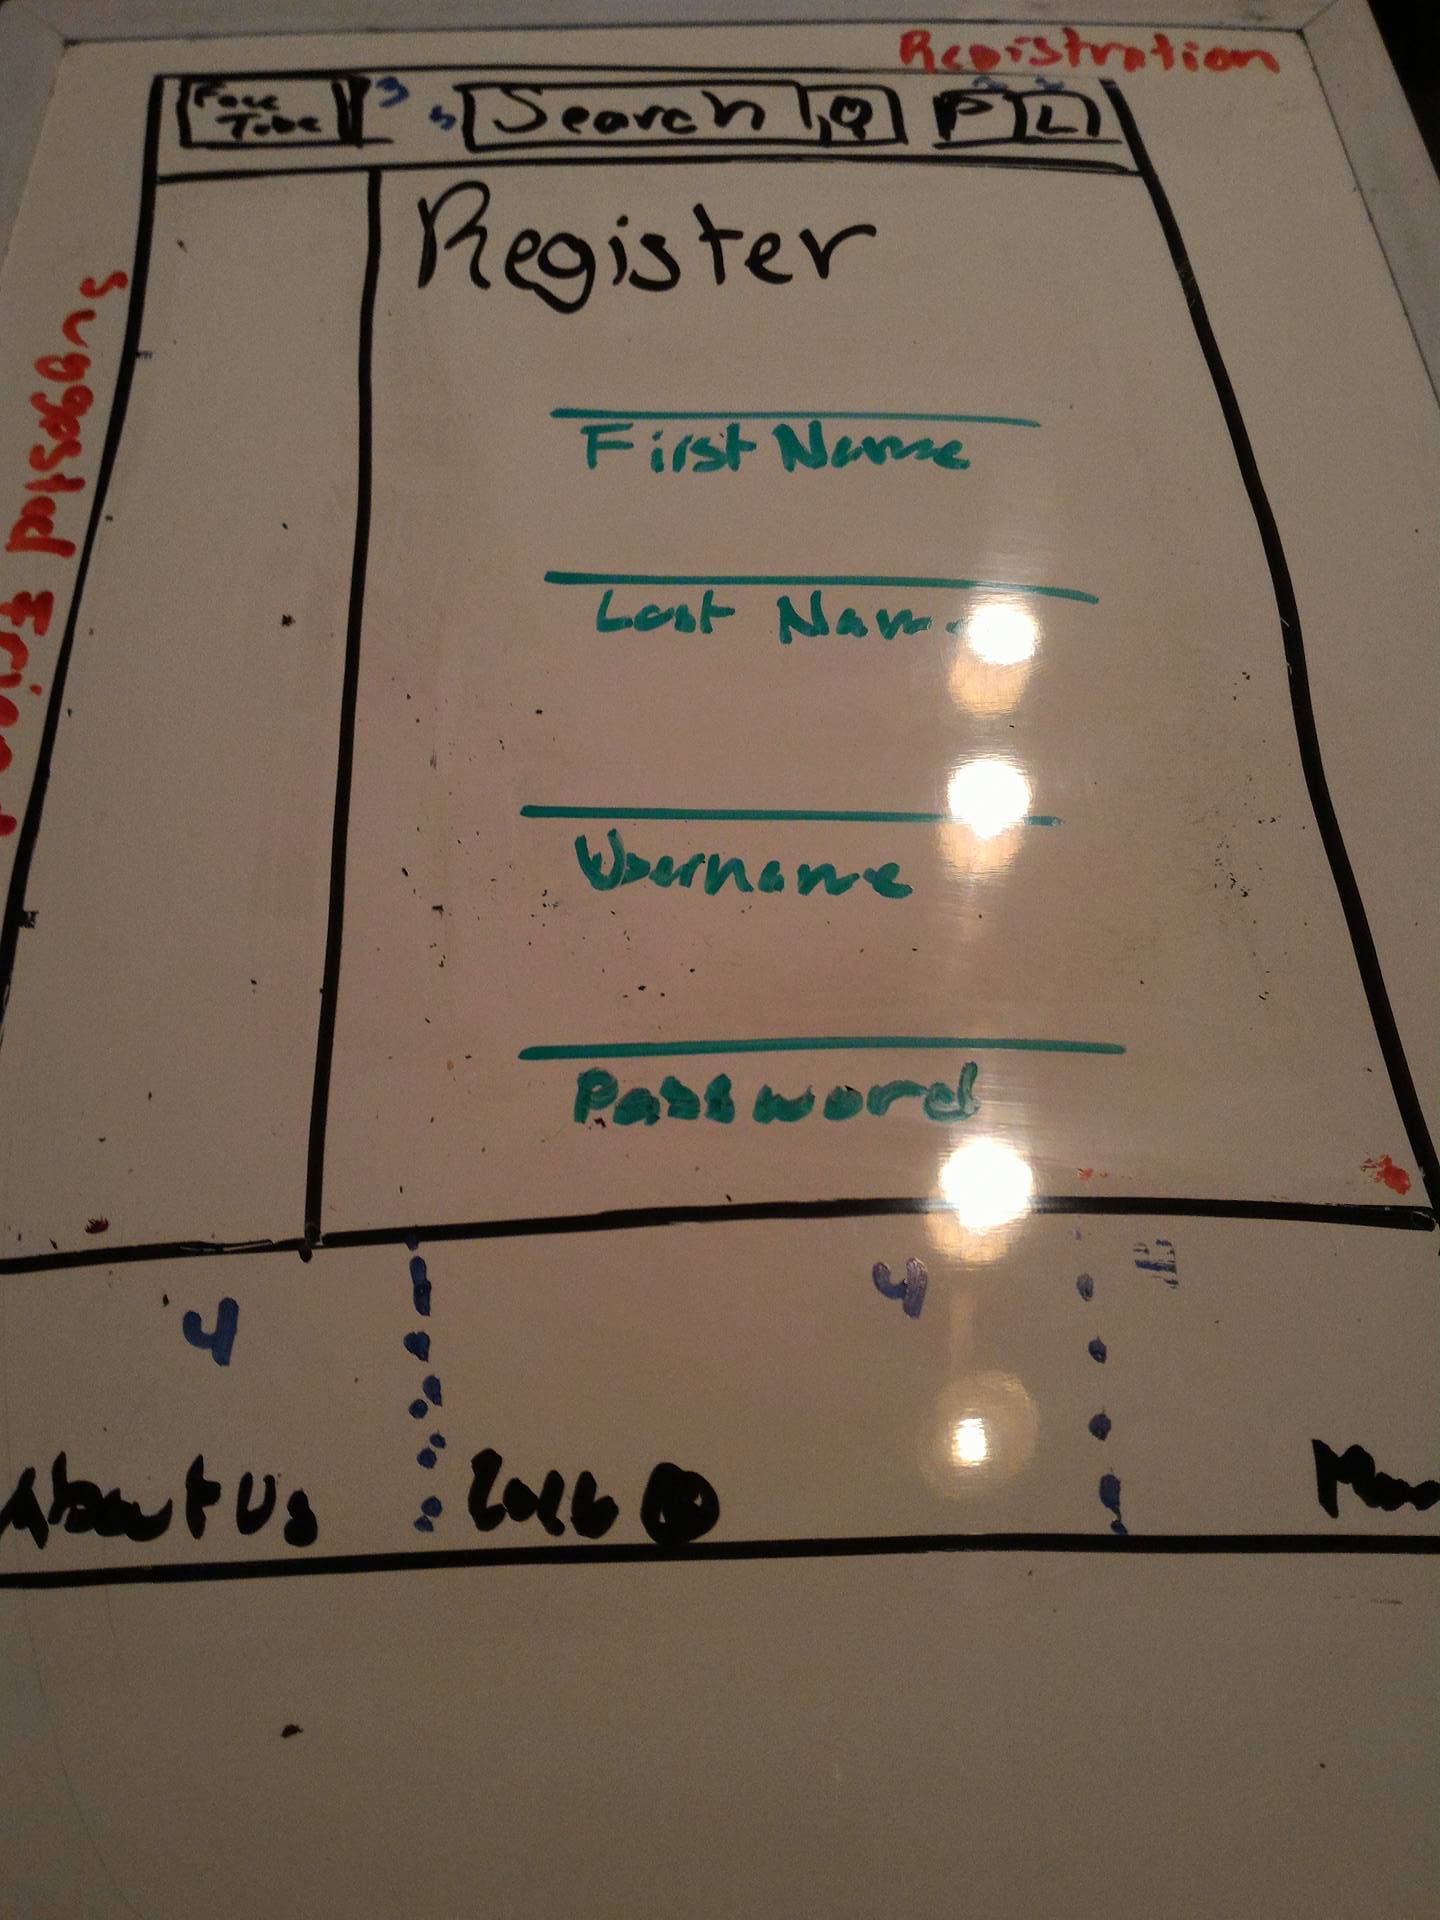 Registration
Face
Tube
3
5
Search
P L
Register
Suggested Friend
First Name
Last Nam
Username
Password
4
4
About Us
2016